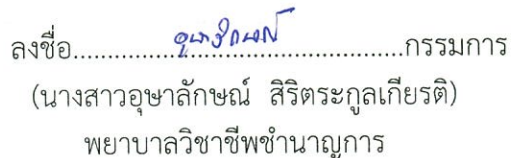 ลงชื่อ.......อุษาลักษณ์.......กรรมการ
(นางสาวอุษาลักษณ์ สิริตระกูลเกียรติ)
พยาบาลวิชาชีพชำนาญการ